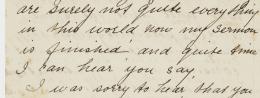 are surely not quite everything
in this world now my sermon
is finished and quite time
I can hear you say,
I was sorry to hear that you